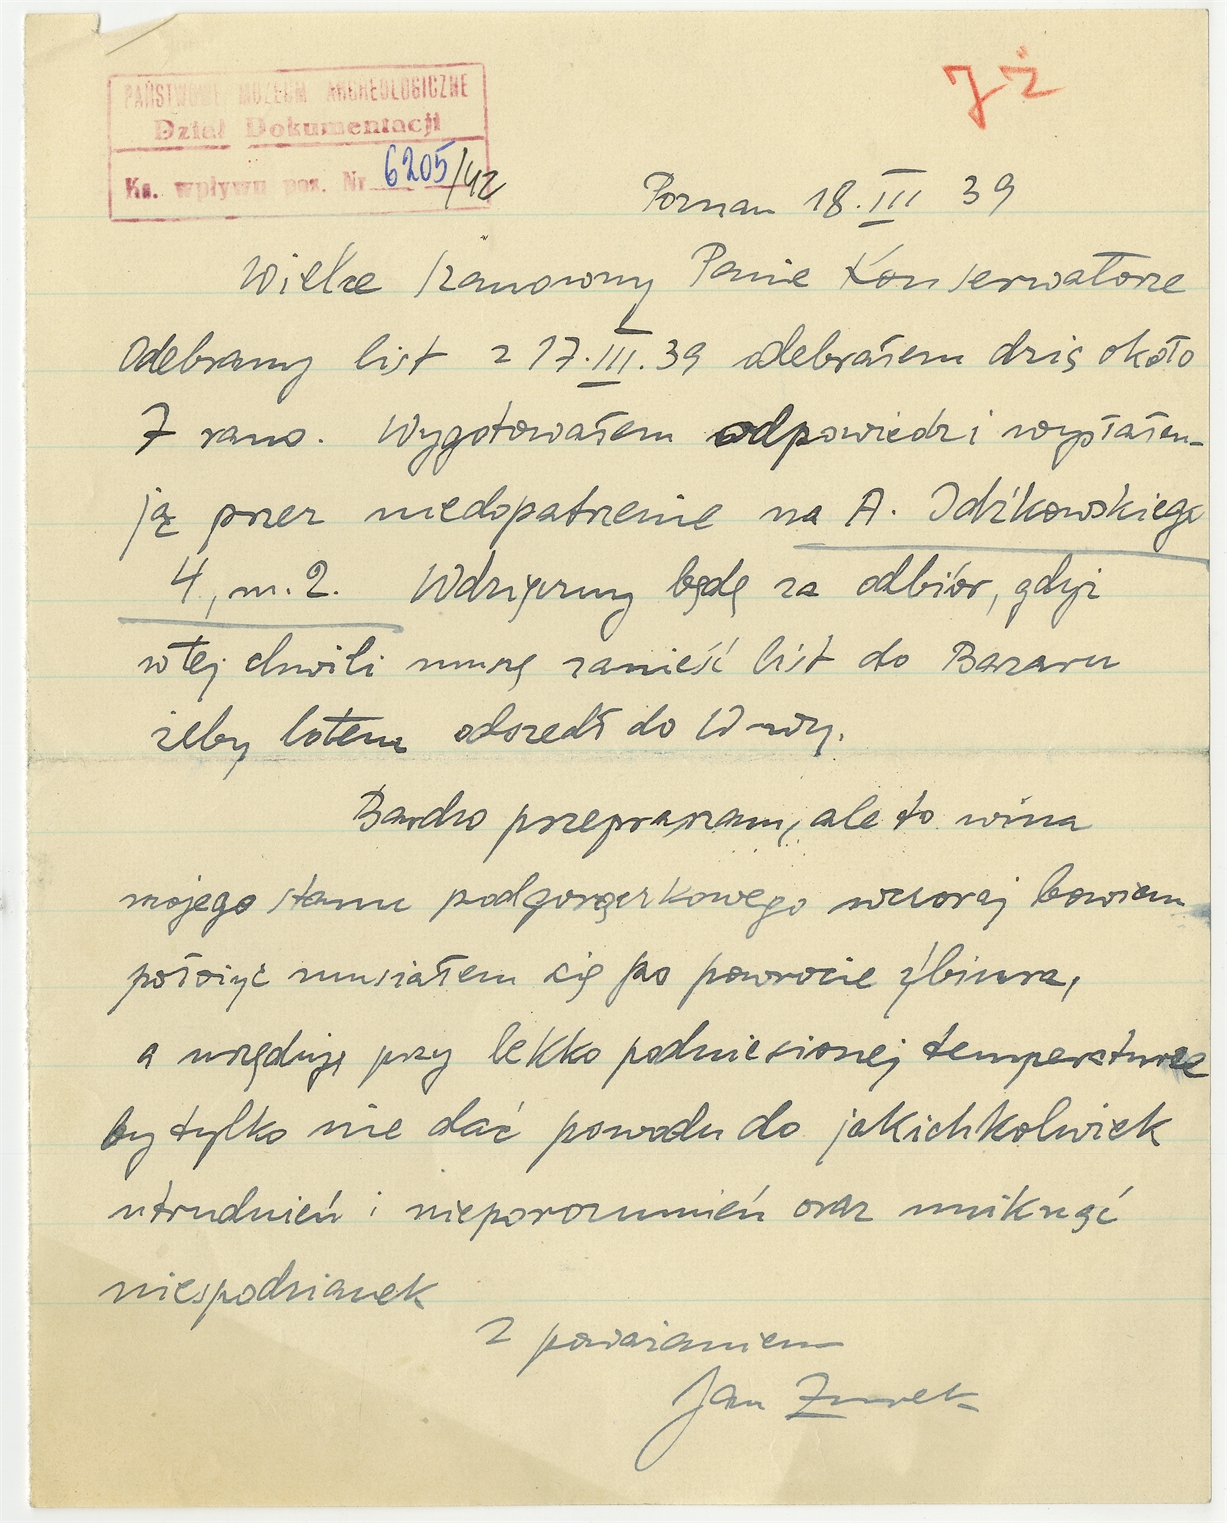 PAŃSTWOWE MUZEUM ARCHEOLOGICZNE
Dział Dokumentacji
Ks. wpływu poz. Nr 6205/42
JŻ
Poznan 18.III 39
Wielce Szanowny Panie Konserwatorze
Odebrany list z 17.III.39 odebrałem dziś około
7 rano. Wygotowałem odpowiedź i wysłałem
ją przez niedopatrzenie na A. Idźkowskiego
4, m. 2. Wdzięczny będę za odbiór, gdyż
w tej chwili muszę zanieść list do Bazaru
żeby lotem odszedł do W-wy.
Bardzo przepraszam, ale to wina
mojego stanu podgorączkowego wczoraj bowiem
położyć musiałem się po powrocie z biura,
a urzęduję przy lekko podniesionej temperaturze
by tylko nie dać powodu do jakichkolwiek
utrudnień i nieporozumień oraz uniknąć
niespodzianek
Z poważaniem
Jan Żurek